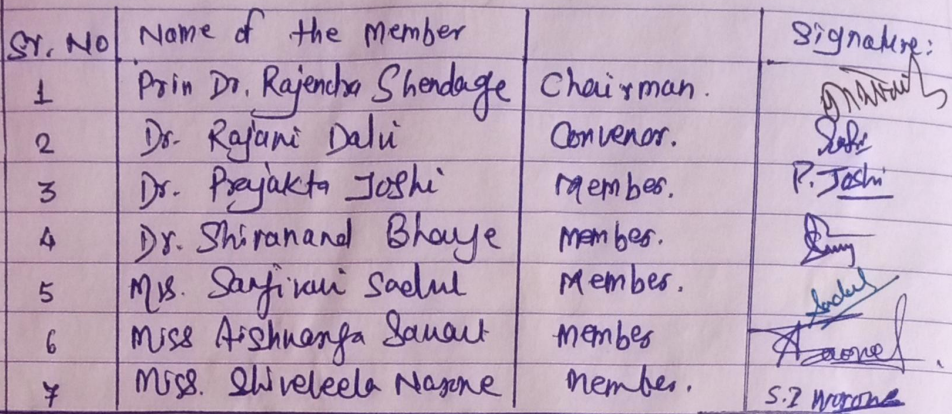 Sr. No Name of the Member Signature:
1 Prin Dr. Rajendra Shendage Chairman.
2 Dr. Rajani Dalvi Convenor.
3 Dr. Prajakta Joshi Member. P. Joshi
4 Dr. Shivanand Bhanje Member.
5 Mrs. Sanjivani Sadul Member. Sadul
6 Miss Aishwarya Sawant Member
7 Miss. Shiveleela Narone Member. S.I Narone